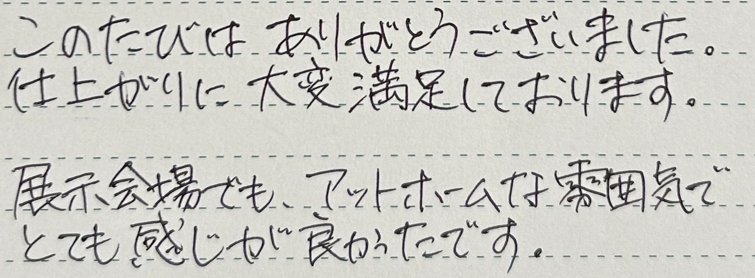 このたびは ありがとうございました。
仕上がりに 大変満足しております。
展示会場でも、アットホームな雰囲気で
とても感じが良かったです。